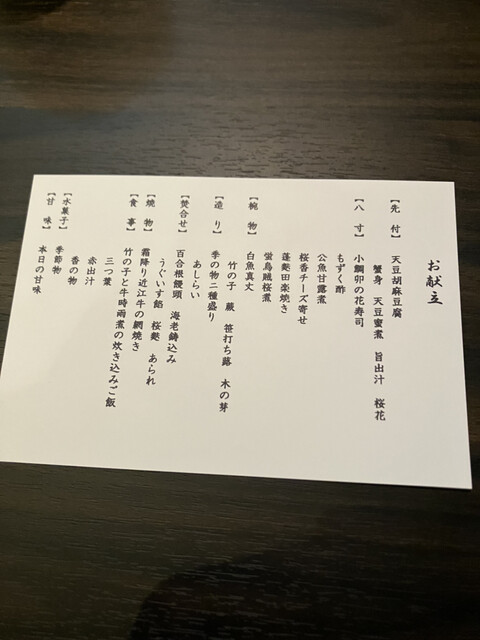 お献立
【先 付】 天豆胡麻豆腐
蟹身 天豆蜜煮 旨出汁 桜花
【八 寸】 小鯛卯の花寿司
もずく酢
公魚甘露煮
桜香チーズ寄せ
蓬麩田楽焼き
蛍烏賊桜煮
【椀 物】 白魚真丈
竹の子 蕨 笹打ち蕗 木の芽
【造 り】 季の物二種盛り
あしらい
【焚合せ】 百合根饅頭 海老鋳込み
うぐいす餡 桜麩 あられ
【焼 物】 霜降り近江牛の網焼き
【食 事】 竹の子と牛時雨煮の炊き込みご飯
三つ葉
赤出汁
香の物
【水菓子】 季節物
【甘 味】 本日の甘味